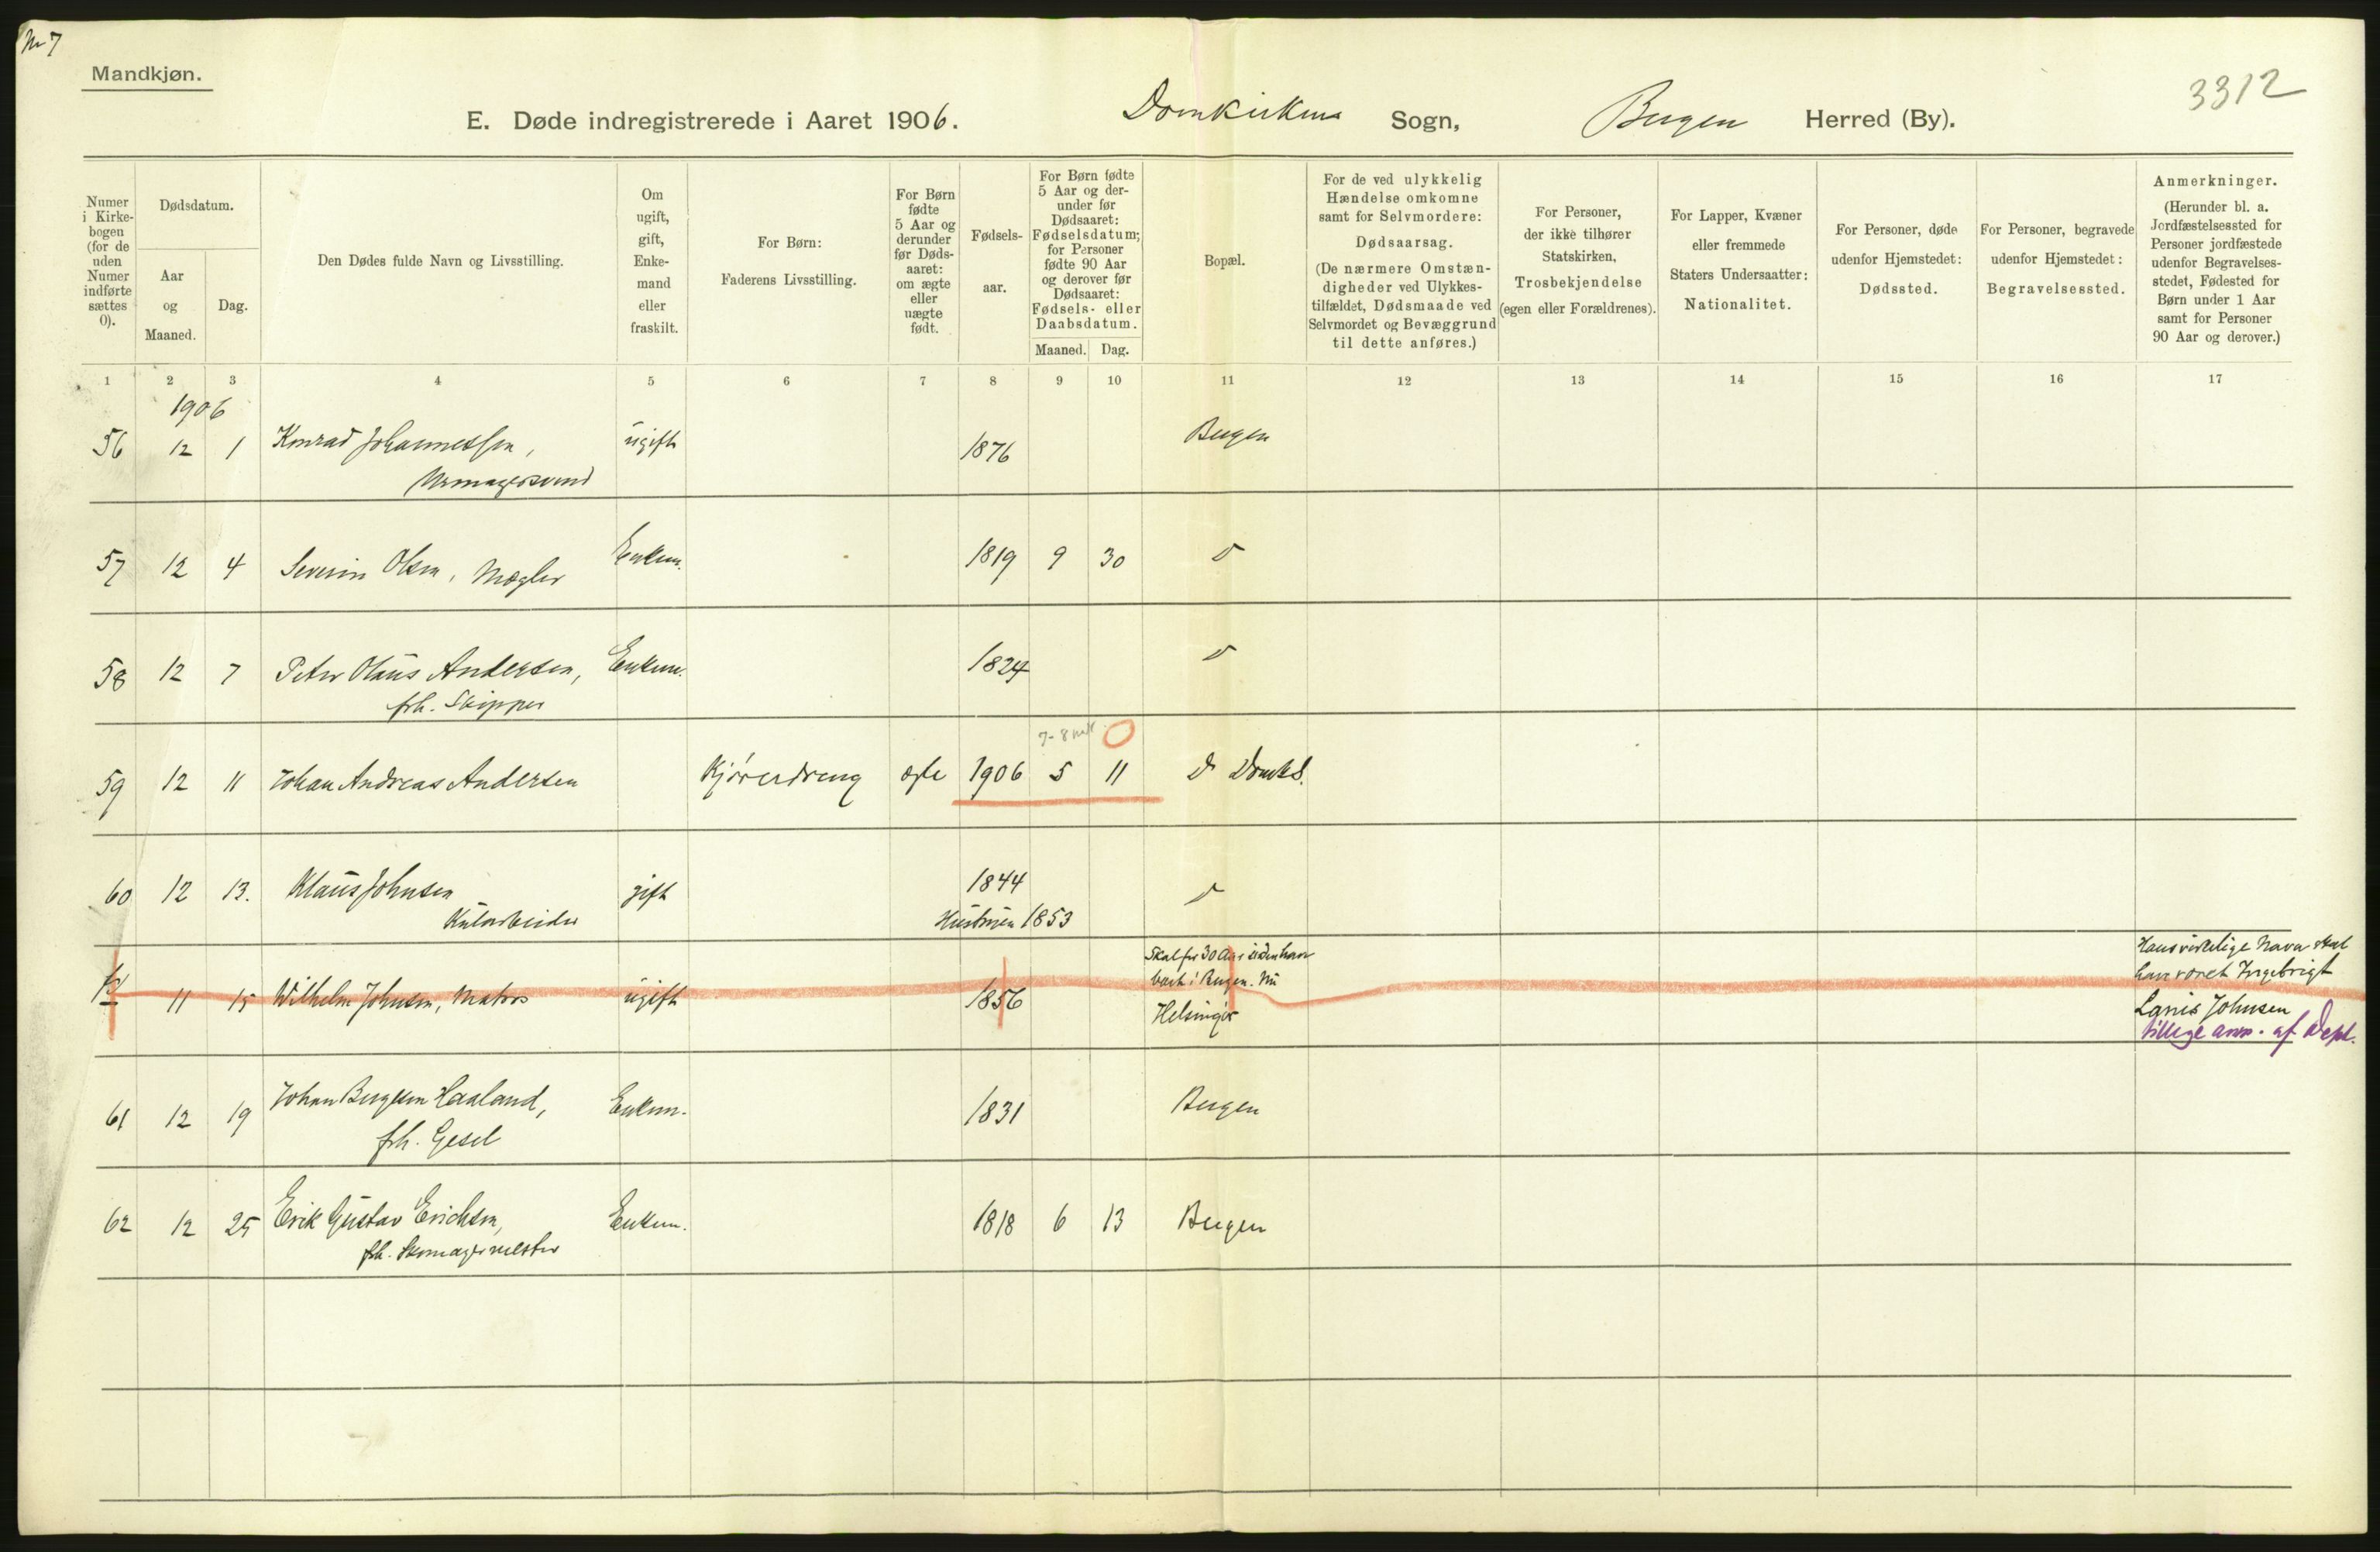 No 7
Mandkjøn.
3312
E. Døde indregistrerede i Aaret 1906. Domkirkens Sogn, Bergen Herred (By).
Numer i Kirke-bogen (for de uden Numer indførte sættes 0).
Dødsdatum.
Aar og Maaned.
Dag.
Den Dødes fulde Navn og Livsstilling.
Om ugift, gift, Enke-mand eller fraskilt.
For Børn:
Faderens Livsstilling.
For Børn fødte 5 Aar og derunder før Døds-aaret: om ægte eller uægte født.
Fødsels-aar.
For Børn fødte 5 Aar og der-under før Dødsaaret: Fødselsdatum; for Personer fødte 90 Aar og derover før Dødsaaret: Fødsels- eller Daabsdatum.
Maaned. Dag.
Bopæl.
For de ved ulykkelig Hændelse omkomne samt for Selvmordere:
Dødsaarsag.
(De nærmere Omstæn-digheder ved Ulykkes-tilfældet, Dødsmaade ved Selvmordet og Bevæggrund til dette anføres.)
For Personer, der ikke tilhører Statskirken,
Trosbekjendelse
(egen eller Forældrenes).
For Lapper, Kvæner eller fremmede Staters Undersaatter:
Nationalitet.
For Personer, døde udenfor Hjemstedet:
Dødssted.
For Personer, begravede udenfor Hjemstedet:
Begravelsessted.
Anmerkninger.
(Herunder bl. a. Jordfæstelsessted for Personer jordfæstede udenfor Begravelses-stedet, Fødested for Børn under 1 Aar samt for Personer 90 Aar og derover.)
1 2 3 4 5 6 7 8 9 10 11 12 13 14 15 16 17
1906
56 12 1 Konrad Johannessen, ugift 1876 Bergen
Urmagersvend
57 12 4 Severin Olsen, Mægler Enkem. 1819 9 30 d
58 12 7 Peter Olaus Andersen, Enkem. 1824 d
frh. Skipper
7-8 md
59 12 11 Johan Andreas Andersen Kjøredreng ægte 1906 5 11 d Domks.
60 12 13. Klaus Johnsen gift 1844 d
Hustruen 1853
11 15 Wilhelm Johnsen, Matros ugift 1856
Skal for 30 Aar siden have
boet i Bergen. Nu
Helsingør
Hans virkelige Navn skal
have været Ingebrigt
Johnsen
tillige anm. af Dept.
61 12 19 Johan Bergesen Haaland, Enkem. 1831 Bergen
frh. Gesel
62 12 25 Erik Gustav Erichsen, Enkem. 1818 6 13 Bergen
frh. Skomagermester